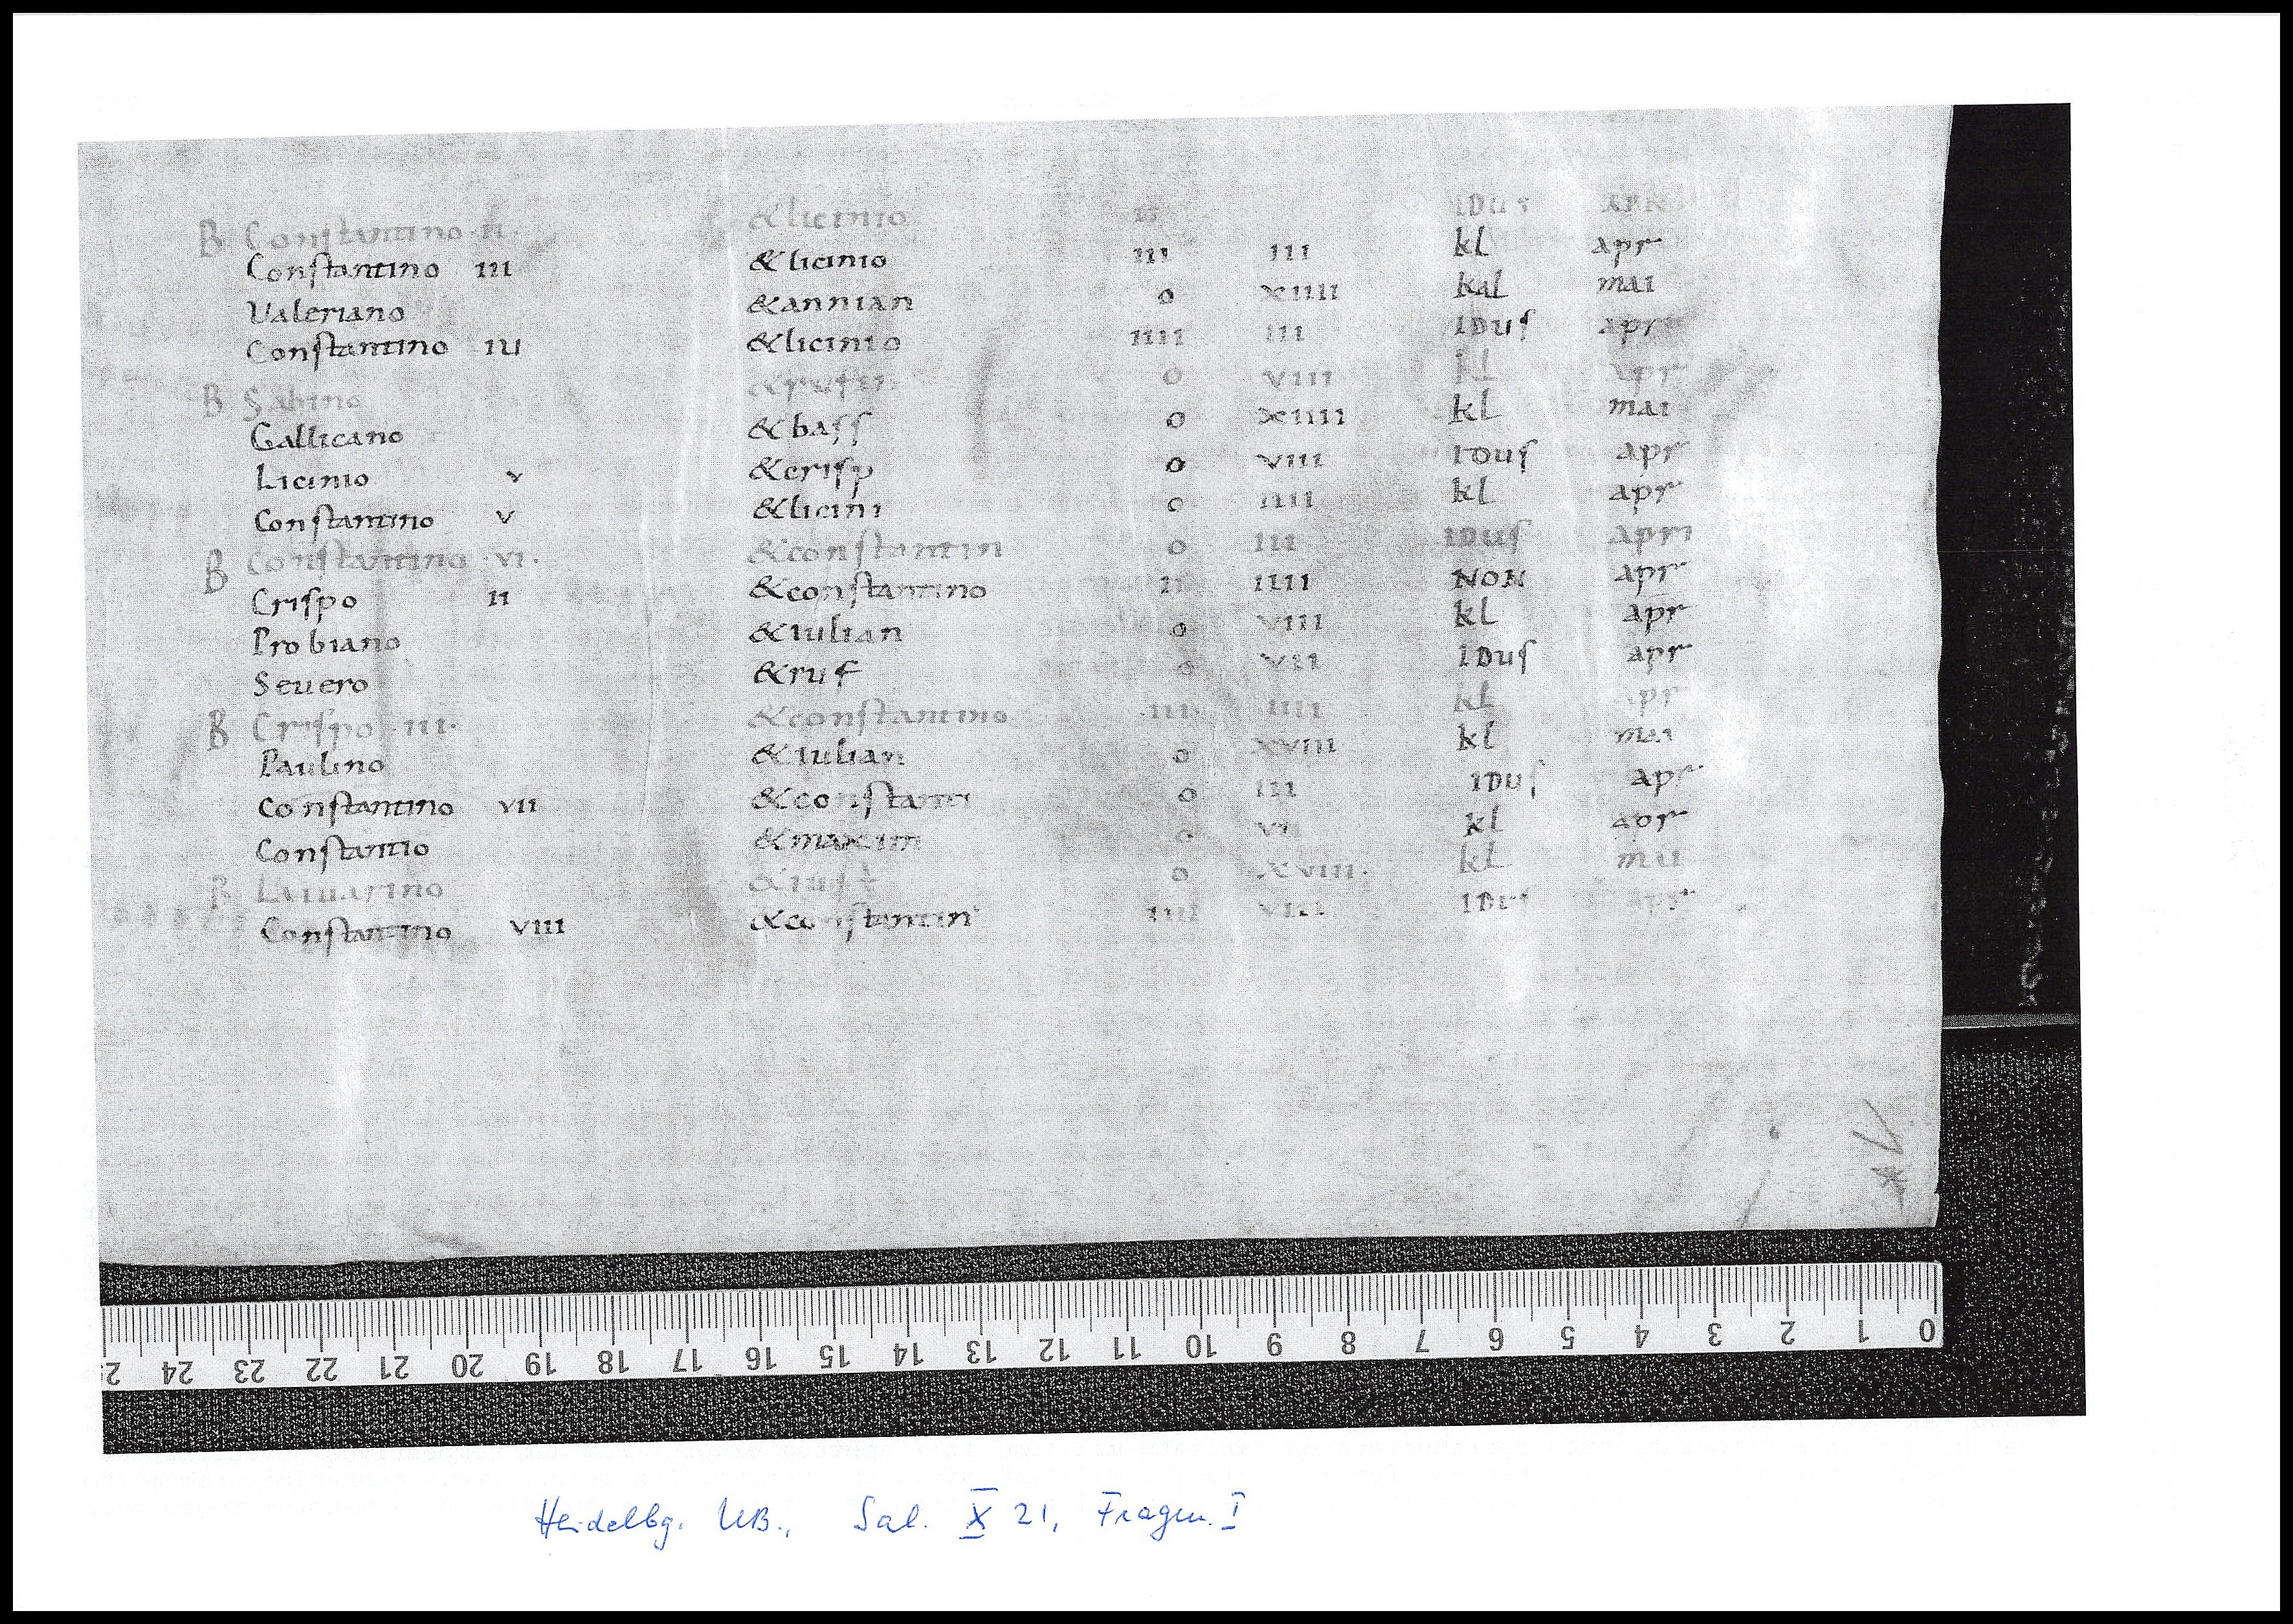 B Constantino · II · & licinio II IDus APR
Constantino III & licinio III III kl apr
Valeriano & annian o XIIII kal mai
Constantino IU & licinio IIII III IDus apr
B Sabino & rufin o VIII kl apr
Gallicano & bass o XIIII kl mai
Licinio V & crisp o VIII IDus apr
Constantino V & licini o IIII kl apr
B Constantino · VI · & constantin o III IDus apri
Crispo II & constantino II IIII NON apr
Probiano & iulian o VIII kl apr
Seuero & ruf o VII IDus apr
B Crispo · III · & constantino · III · IIII kl apr
Paulino & iulian o XVIII kl mai
Constantino VII & constanti o III IDus apr
Constantio & maxim o VII kl apr
B & iust o XVIII · kl mai
Constantino VIII & constantin IIII VIII IDus apr
25 24 23 22 21 20 19 18 17 16 15 14 13 12 11 10 9 8 7 6 5 4 3 2 1 0
Heidelbg. UB., Sal. X 21, Fragm. I